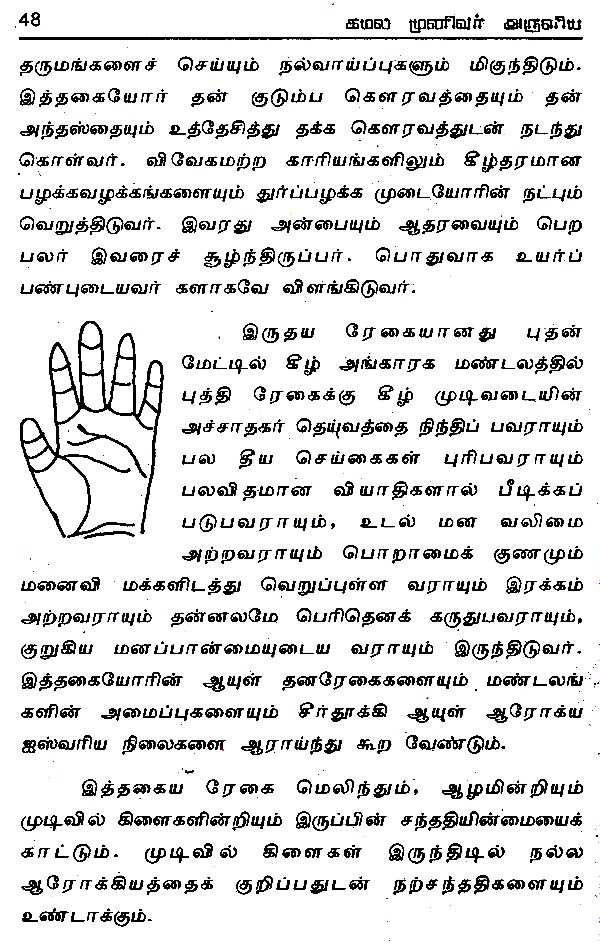 48
கமல முனிவர் அருளிய
தருமங்களைச் செய்யும் நல்வாய்ப்புகளும் மிகுந்திடும்.
இத்தகையோர் தன் குடும்ப கௌரவத்தையும் தன்
அந்தஸ்தையும் உத்தேசித்து தக்க கௌரவத்துடன் நடந்து
கொள்வர். விவேகமற்ற காரியங்களிலும் கீழ்தரமான
பழக்கவழக்கங்களையும் துர்ப்பழக்க முடையோரின் நட்பும்
வெறுத்திடுவர். இவரது அன்பையும் ஆதரவையும் பெற
பலர் இவரைச் சூழ்ந்திருப்பர். பொதுவாக உயர்ப்
பண்புடையவர் களாகவே விளங்கிடுவர்.
இருதய ரேகையானது புதன்
மேட்டில் கீழ் அங்காரக மண்டலத்தில்
புத்தி ரேகைக்கு கீழ் முடிவடையின்
அச்சாதகர் தெய்வத்தை நிந்திப் பவராயும்
பல தீய செய்கைகள் புரிபவராயும்
பலவிதமான வியாதிகளால் பீடிக்கப்
படுபவராயும், உடல் மன வலிமை
அற்றவராயும் பொறாமைக் குணமும்
மனைவி மக்களிடத்து வெறுப்புள்ள வராயும் இரக்கம்
அற்றவராயும் தன்னலமே பெரிதெனக் கருதுபவராயும்,
குறுகிய மனப்பான்மையுடைய வராயும் இருந்திடுவர்.
இத்தகையோரின் ஆயுள் தனரேகைகளையும் மண்டலங்
களின் அமைப்புகளையும் சீர்தூக்கி ஆயுள் ஆரோக்ய
ஐஸ்வரிய நிலைகளை ஆராய்ந்து கூற வேண்டும்.
இத்தகைய ரேகை மெலிந்தும், ஆழமின்றியும்
முடிவில் கிளைகளின்றியும் இருப்பின் சந்ததியின்மையைக்
காட்டும். முடிவில் கிளைகள் இருந்திடில் நல்ல
ஆரோக்கியத்தைக் குறிப்பதுடன் நற்சந்ததிகளையும்
உண்டாக்கும்.